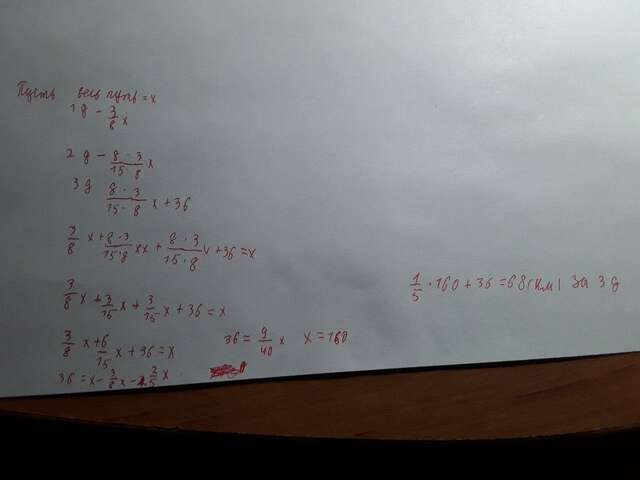 Пусть весь путь = x
1 д - 3/8 x
2 д - 8 · 3/15 · 8 x
3 д 8 · 3/15 · 8 x + 36
3/8 x + 8 · 3/15 · 8 x + 8 · 3/15 · 8 x + 36 = x
3/8 x + 3/15 x + 3/15 x + 36 = x
3/8 x + 6/15 x + 36 = x
36 = x - 3/8 x - 2/5 x
36 = 9/40 x x = 160
1/5 · 160 + 36 = 68 (км) за 3 д